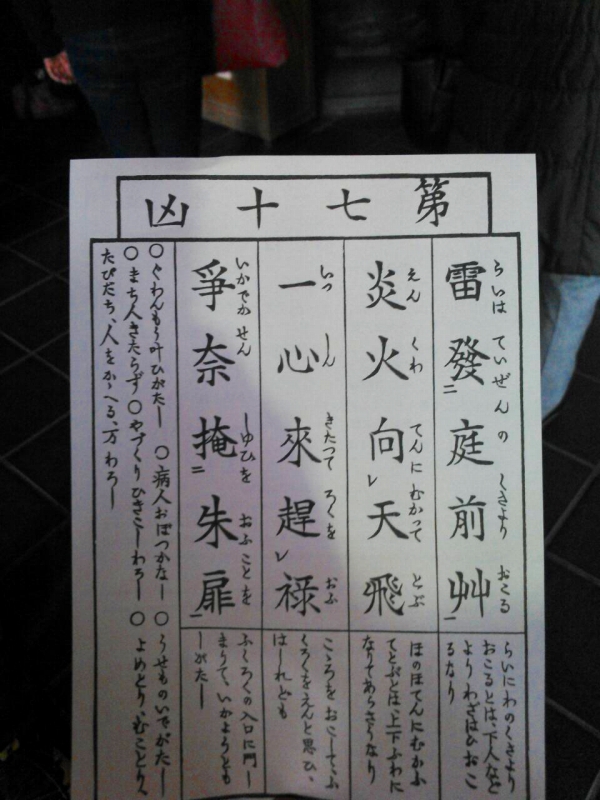 第七十凶
雷發二庭前艸一
らいは ていぜんの くさより おこる
らいにわのくさより
おこるとは、下人など
よりわざはひおこ
るなり
炎火向レ天飛
えん くわ てんに むかつて とぶ
ほのほてんにむかふ
てとぶとは、上下ふわに
なりてあらさうなり
一心來趕レ禄
いつ しん きたつて ろくを おふ
こゝろをおこしてふ
くろくをえんと思ひ、
はしれども
爭奈掩二朱扉一
いかでか せん しゆひを おふことを
ふくろくの入口に門し
まりて、いかようとも
しがたし
○ぐわんもう叶ひがたし ○病人おぼつかなし ○うせものいでがたし
○まち人きたらず ○やづくりひきこしわろし ○よめとり、むことり、
たびだち、人をかゝへる、万わろし